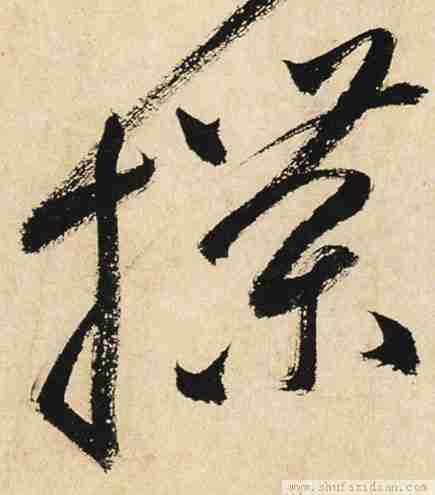 操
www.shufazidian.com